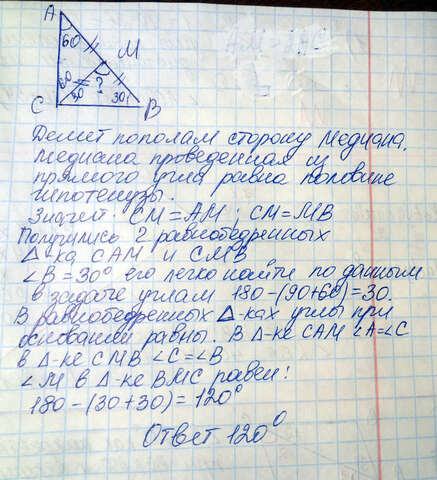 A
60
M
60
30
?
30
C
B
Делит пополам сторону медиана,
медиана проведенная из
прямого угла равна половине
гипотенузы.
Значит: CM = AM; CM = MB
Получились 2 равнобедренных
Δ-ка CAM и CMB
∠B = 30° его легко найти по данным
в задаче углам 180-(90+60)=30.
В равнобедренных Δ-ках углы при
основании равны. В Δ-ке CAM ∠A=∠C
в Δ-ке CMB ∠C=∠B
∠M в Δ-ке BMC равен:
180-(30+30)=120°
Ответ 120°